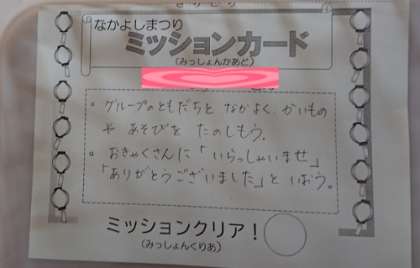 なかよしまつり
ミッションカード
(みっしょんかあど)
。グループのともだちと なかよく、かいもの
や あそびを たのしもう。
。おきゃくさんに「いらっしゃいませ」
「ありがとうございました」と いおう。
ミッションクリア!
(みっしょんくりあ)